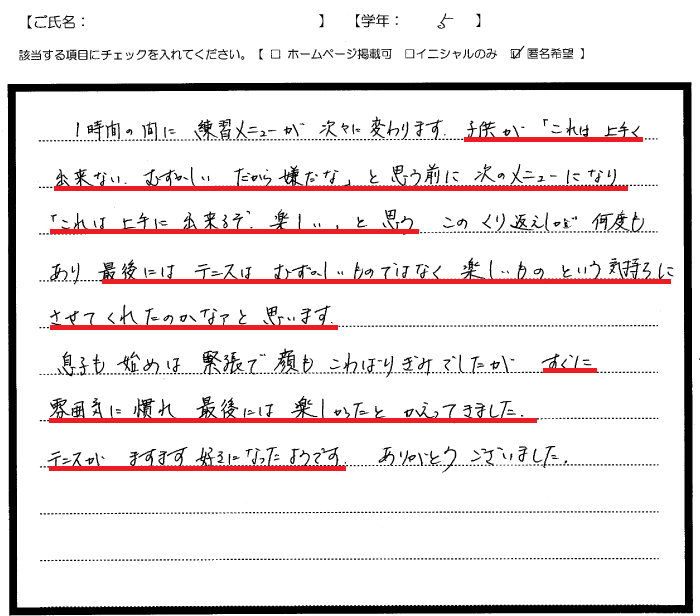 【ご氏名： 】 【学年： 5 】
該当する項目にチェックを入れてください。【 □ ホームページ掲載可 □イニシャルのみ ☑ 匿名希望 】
1時間の間に 練習メニューが 次々に変わります. 子供が「これは 上手く
出来ない. むずかしい だから嫌だな」と思う前に 次のメニューになり
「これは上手に 出来るぞ. 楽しい」と思う このくり返えしが 何度も
あり 最後には テニスは むずかしいものではなく 楽しいもの という気持ちに
させてくれたのかなァと思います.
息子も 始めは 緊張で 顔も こわばりぎみでしたが すぐに
雰囲気に慣れ 最後には 楽しかったと かえってきました.
テニスが ますます 好きになったようです. ありがとう ございました.